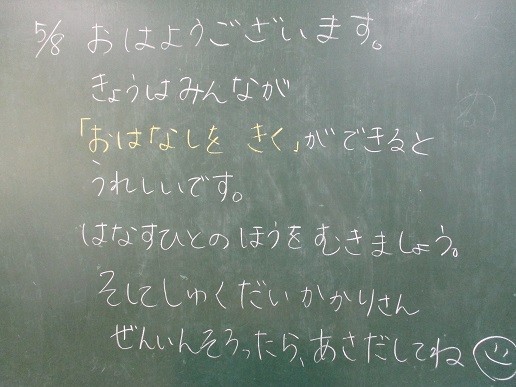 5/8 おはようございます。
きょうはみんなが
「おはなしを きく」ができると
うれしいです。
はなすひとのほうをむきましょう。
そしてしゅくだいかかりさん
ぜんいんそろったら、あさだしてね